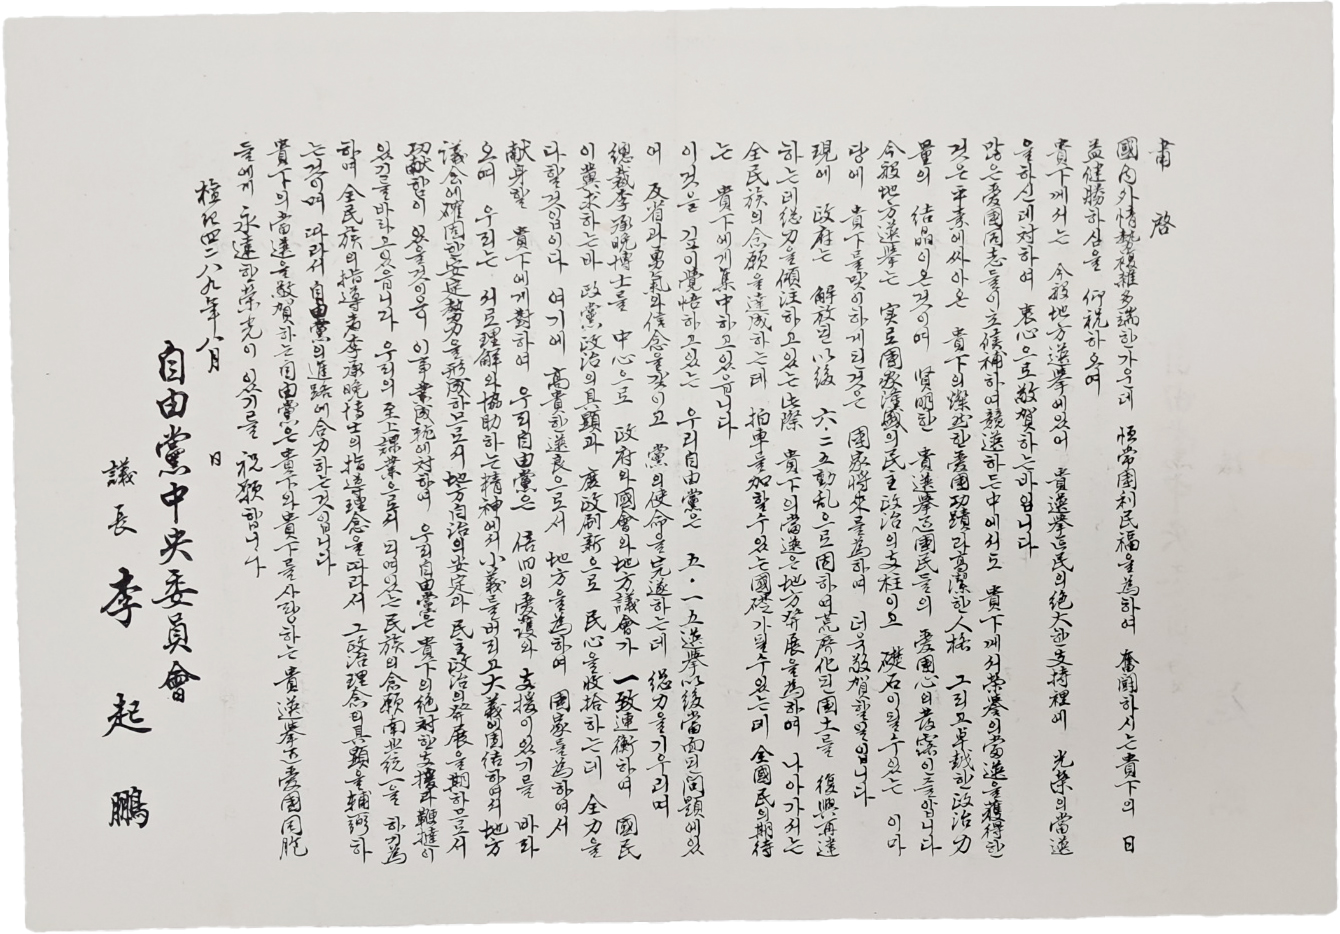 肅啓
國內外情勢複雜多端한가운데 恒常國利民福을爲하여 奮鬪하시는貴下의 日
益健勝하심을 仰祝하오며
貴下께서는 今般地方選擧에있어 貴選擧區民의絶大한支持裡에 光榮의當選
을하신데対하여 衷心으로敬賀하는바입니다
많은愛國同志들이立候補하여競選하든中에서도 貴下께서榮譽의當選을獲得한
것은平素에싸아온 貴下의燦然한愛国功蹟과高潔한人格 그리고卓越한政治力
量의 結晶이온것이며 賢明한 貴選擧区國民들의 愛国心의發露인줄압니다
今般地方選擧는 実로國家護國의民主政治의支柱이고 礎石이될수있는 이마
당에 貴下를맞이하게된것은 國家將來를爲하여 더욱敬賀할일입니다
現에 政府는 解放된以後 六二五動乱으로因하여荒廢化된國土를 復興再建
하는데總力을傾注하고있는此際 貴下의當選은地方發展을爲하여 나아가서는
全民族의念願을達成하는데 拍車를加할수있는國礎가될수있는데 全國民의期待
는 貴下에게集中하고있읍니다
이것을 깊이覺悟하고있는 우리自由黨은 五·一五選擧以後當面된問題에있
어 反省과勇氣와信念을갖이고 黨의使命을完遂하는데 總力을기우리며
總裁李承晩博士를 中心으로 政府와國會와地方議會가 一致連衡하여 國民
이冀求하는바 政黨政治의具顯과 庶政刷新으로 民心을收拾하는데 全力을
다할것입니다 여기에 高貴한選良으로서 地方을爲하여 國家를爲하여서
献身할 貴下에게對하여 우리自由黨은 倍旧의愛護와 支援이있기를 바라
오며 우리는 서로理解와協助하는精神에서 小義를버리고大義에團結하여서地方
議会에確固한安定勢力을形成하므로서 地方自治의安定과 民主政治의發展을期하므로서
功献함이 있을것이음 이事業成就에対하여 우리自由黨은 貴下의絶対한支援과鞭撻이
있기를바라고있읍니다 우리의至上課業으로서 되여있는民族의念願南北統一을 하기爲
하여 全民族의指導者李承晩博士의指導理念을따라서 그政治理念의具顯을輔弼하
는것이며 따라서 自由黨의進路에合力하는것입니다
貴下의當選을敬賀하는自由黨은貴下와貴下를사랑하는 貴選擧区愛國同胞
들에게 永遠한榮光이 있기를 祝願합니다
檀紀四二八九年八月 日
自由黨中央委員會
議長 李起鵬